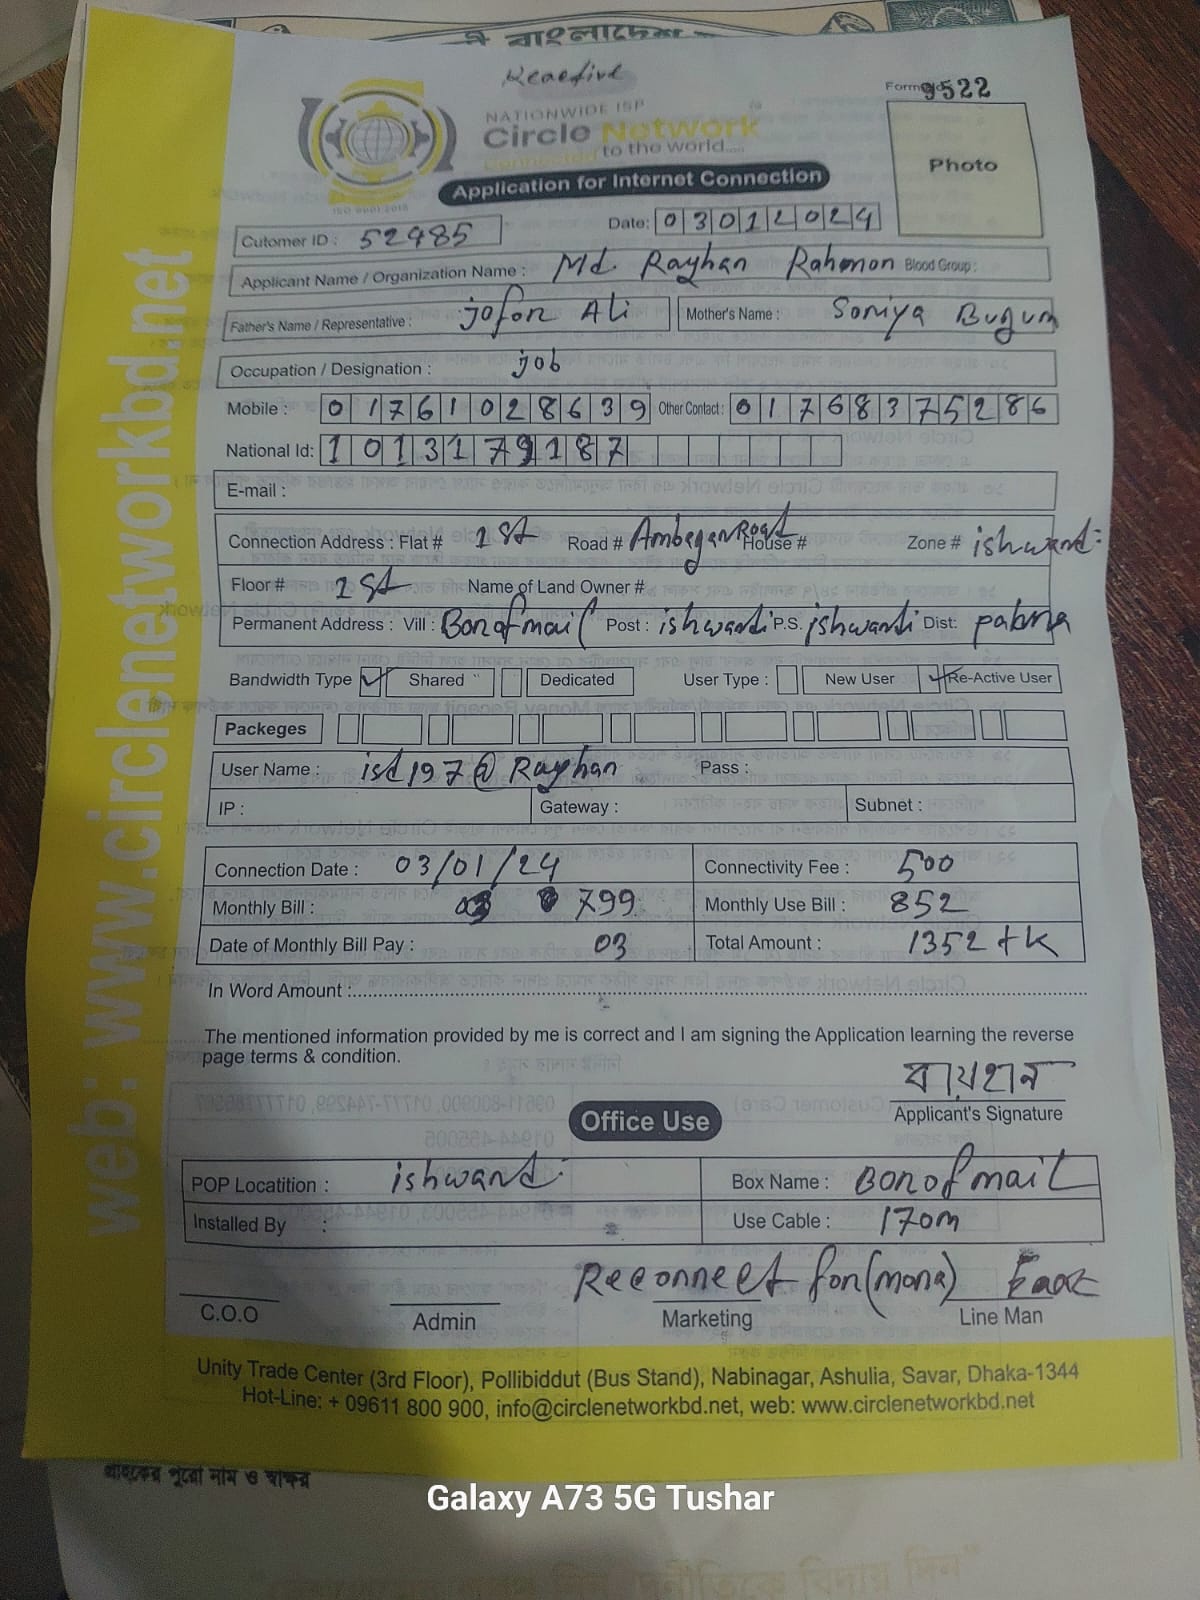 Reactive
Form 9522
NATIONWIDE ISP
Circle Network
Connected to the world.....
Photo
Application for Internet Connection
ISO 9001:2015
Date: 03012024
Cutomer ID : 52485
Applicant Name / Organization Name : Md. Rayhan Rahmon Blood Group :
Father's Name / Representative : jofor Ali Mother's Name : Soniya Bugum
Occupation / Designation : job
Mobile : 01761028639 Other Contact : 01768375286
National Id: 1013179187
E-mail :
Connection Address : Flat # 1st Road # Ambagan Road House # Zone # ishwardi
Floor # 1st Name of Land Owner #
Permanent Address : Vill : Bonofmail Post : ishwardi P.S. ishwardi Dist: pabna
Bandwidth Type ✓ Shared Dedicated User Type : New User ✓ Re-Active User
Packeges
User Name : isd197@Rayhan Pass :
IP : Gateway : Subnet :
Connection Date : 03/01/24 Connectivity Fee : 500
Monthly Bill : 799 Monthly Use Bill : 852
Date of Monthly Bill Pay : 03 Total Amount : 1352 tk
In Word Amount :
The mentioned information provided by me is correct and I am signing the Application learning the reverse
page terms & condition.
রায়হান
Applicant's Signature
Office Use
POP Locatition : ishwardi Box Name : Bonofmail
Installed By : Use Cable : 170m
Reconnect for (mona)
C.O.O Admin Marketing Line Man
Unity Trade Center (3rd Floor), Pollibiddut (Bus Stand), Nabinagar, Ashulia, Savar, Dhaka-1344
Hot-Line: + 09611 800 900, info@circlenetworkbd.net, web: www.circlenetworkbd.net
web: www.circlenetworkbd.net
গ্রাহকের পুরো নাম ও স্বাক্ষর
Galaxy A73 5G Tushar